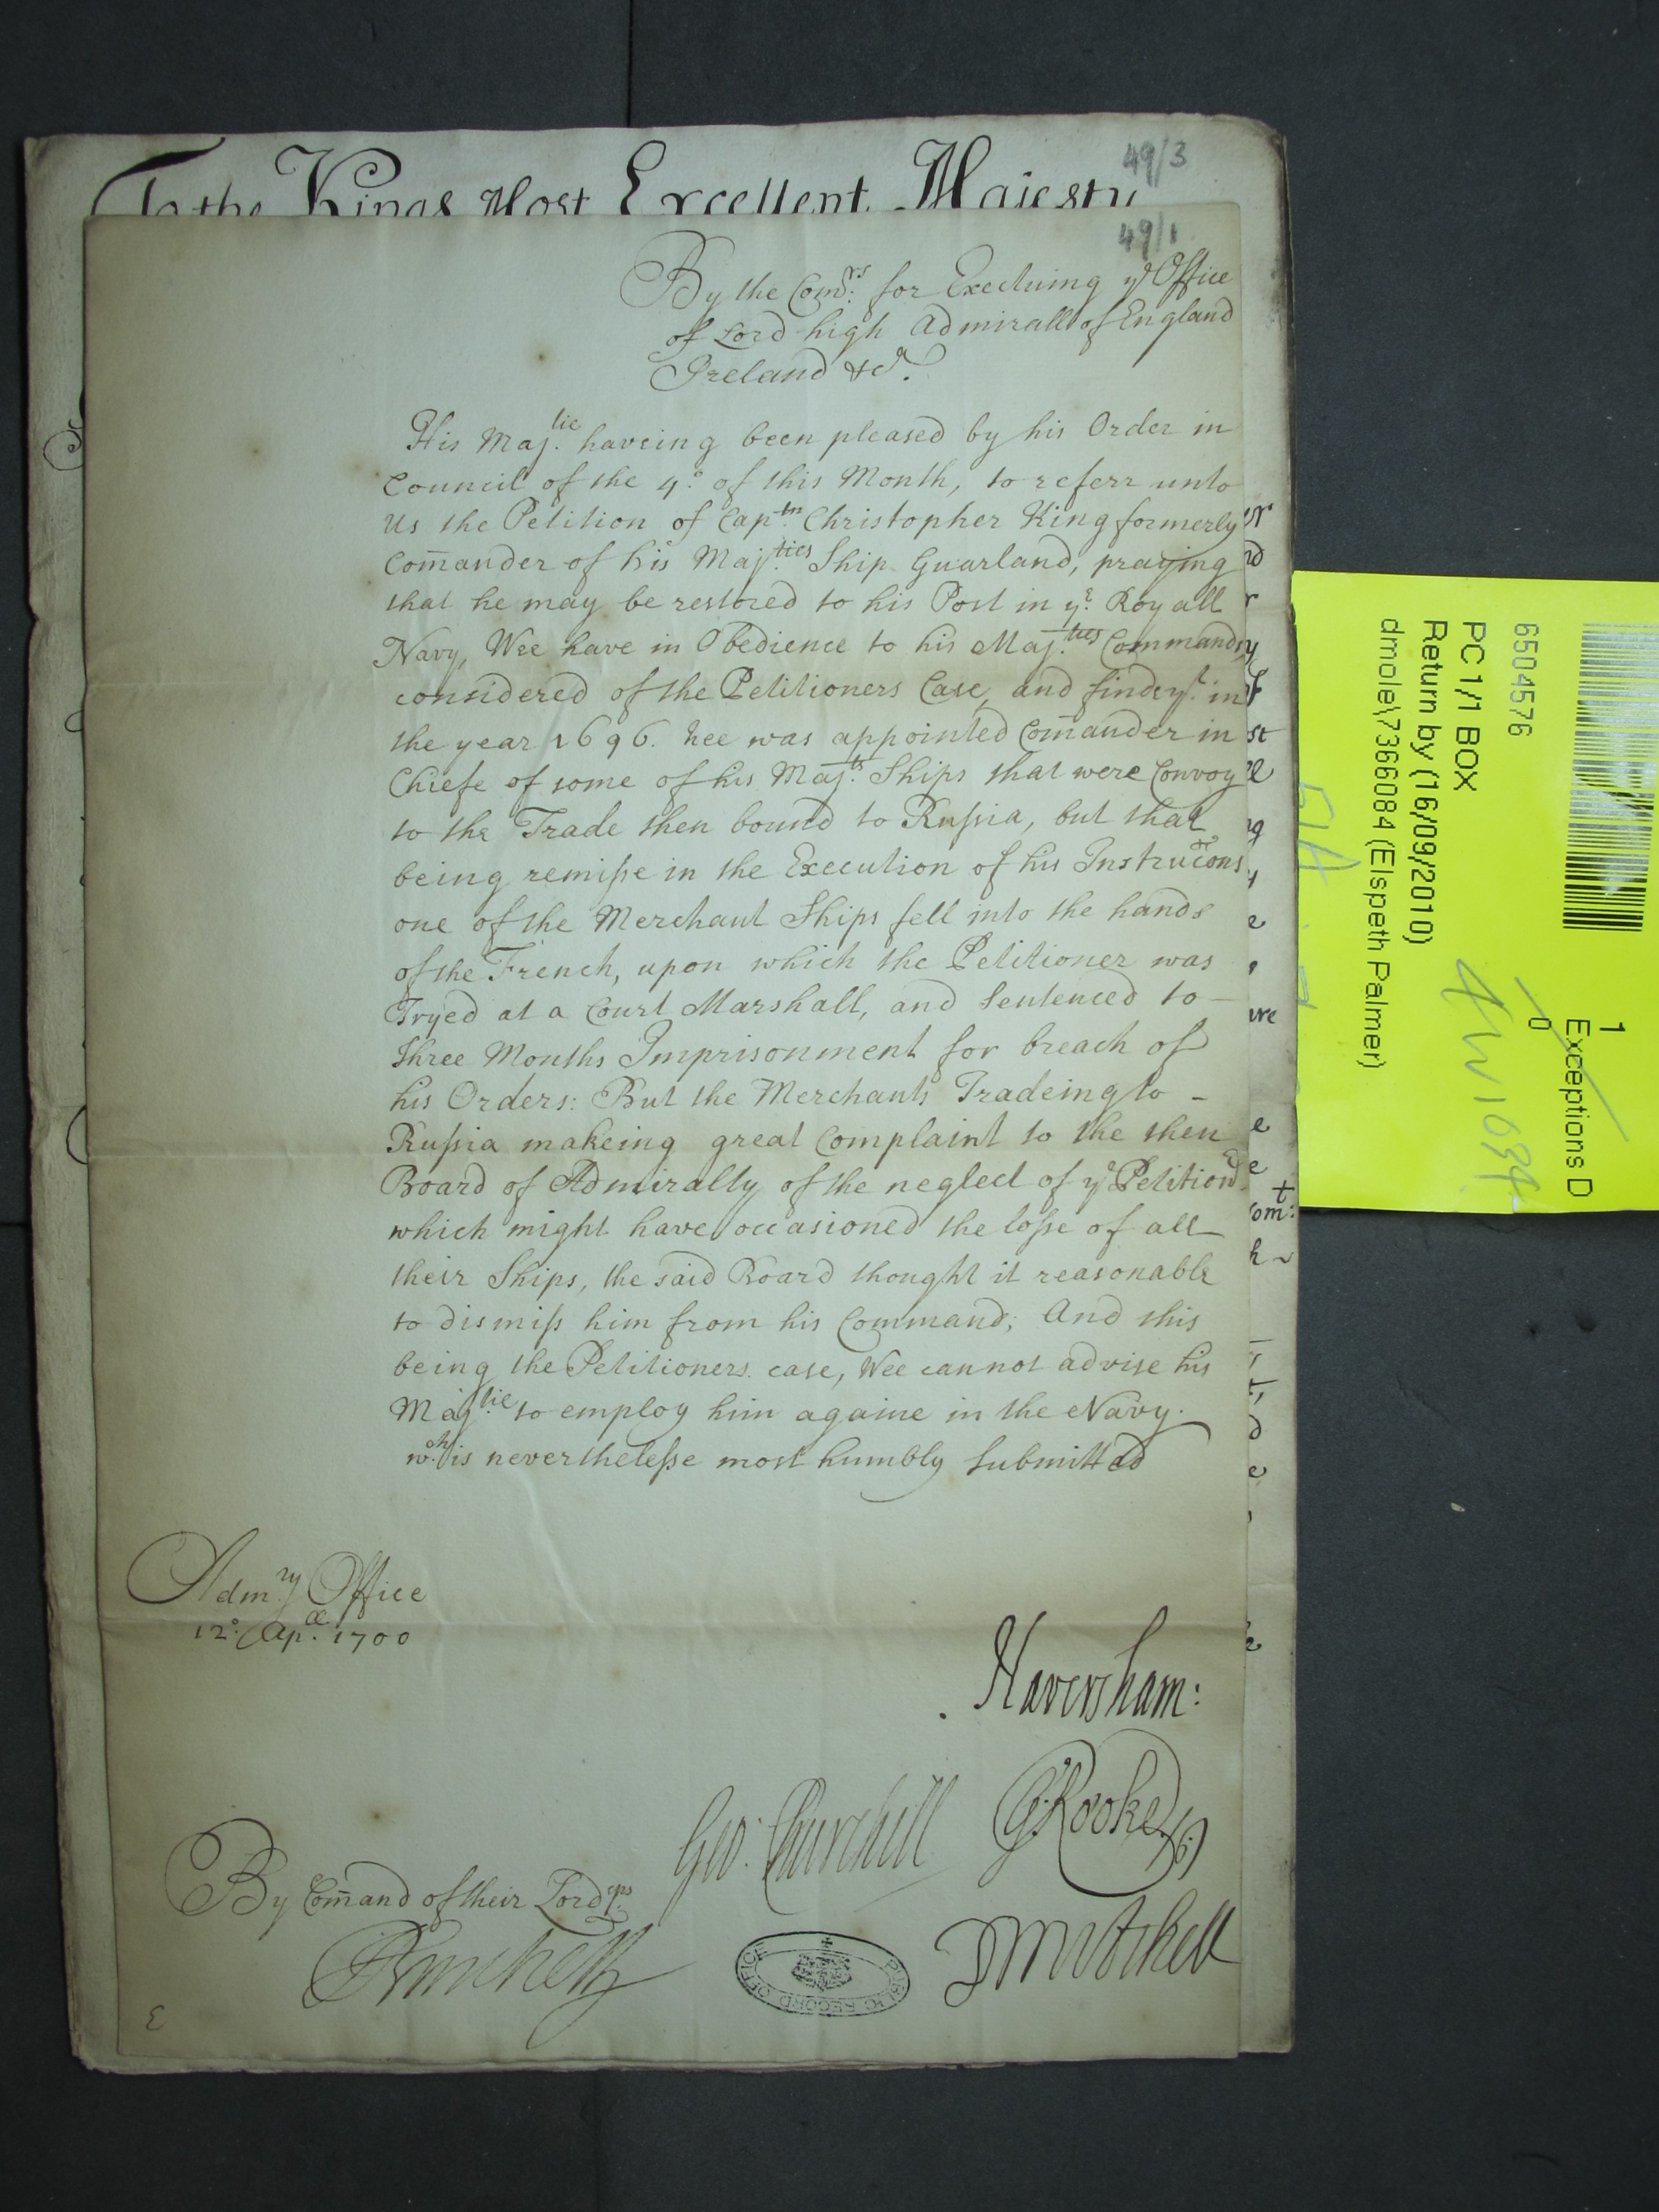 49/3
To the Kings Most Excellent Majesty
49/1
By the Com.rs for Executing ye Office
of Lord high Admirall of England
Ireland &c.a
His Maj.tie haveing been pleased by his Order in
Council of the 4.o of this Month, to referr unto
us the Petition of Cap.tn Christopher King formerly
Com̄ander of his Maj.ties Ship Guarland, praying
that he may be restored to his Post in y.e Royall
Navy, Wee have in Obedience to his Maj.ties Commands
considered of the Petitioners Case, and finde y.t in
the year 1696. hee was appointed Com̄ander in
Chiefe of some of his Maj.ts Ships that were Convoy
to the Trade then bound to Russia, but that
being remisse in the Execution of his Instruc̄ons
one of the Merchant Ships fell into the hands
of the French, upon which the Petitioner was
Tryed at a Court Marshall, and Sentenced to -
three Months Imprisonment for breach of
his Orders: But the Merchants Tradeing to -
Russia makeing great Complaint to the then
Board of Admiralty of the neglect of ye Petition.r
which might have occasioned the losse of all
their Ships, the said Board thought it reasonable
to dismiss him from his Command; And this
being the Petitioners case, Wee cannot advise his
Maj.tie to employ him againe in the Navy.
w.ch is neverthelesse most humbly Submitted
Adm.ry Office
12.o Ap.ll 1700
Haversham:
Geo: Churchill
G Rooke
By Com̄and of their Lord.ps
D Mitchell
PUBLIC RECORD OFFICE
3
1
Exceptions D
0
6504576
PC 1/1 BOX
Return by (16/09/2010)
dmole\7366084 (Elspeth Palmer)